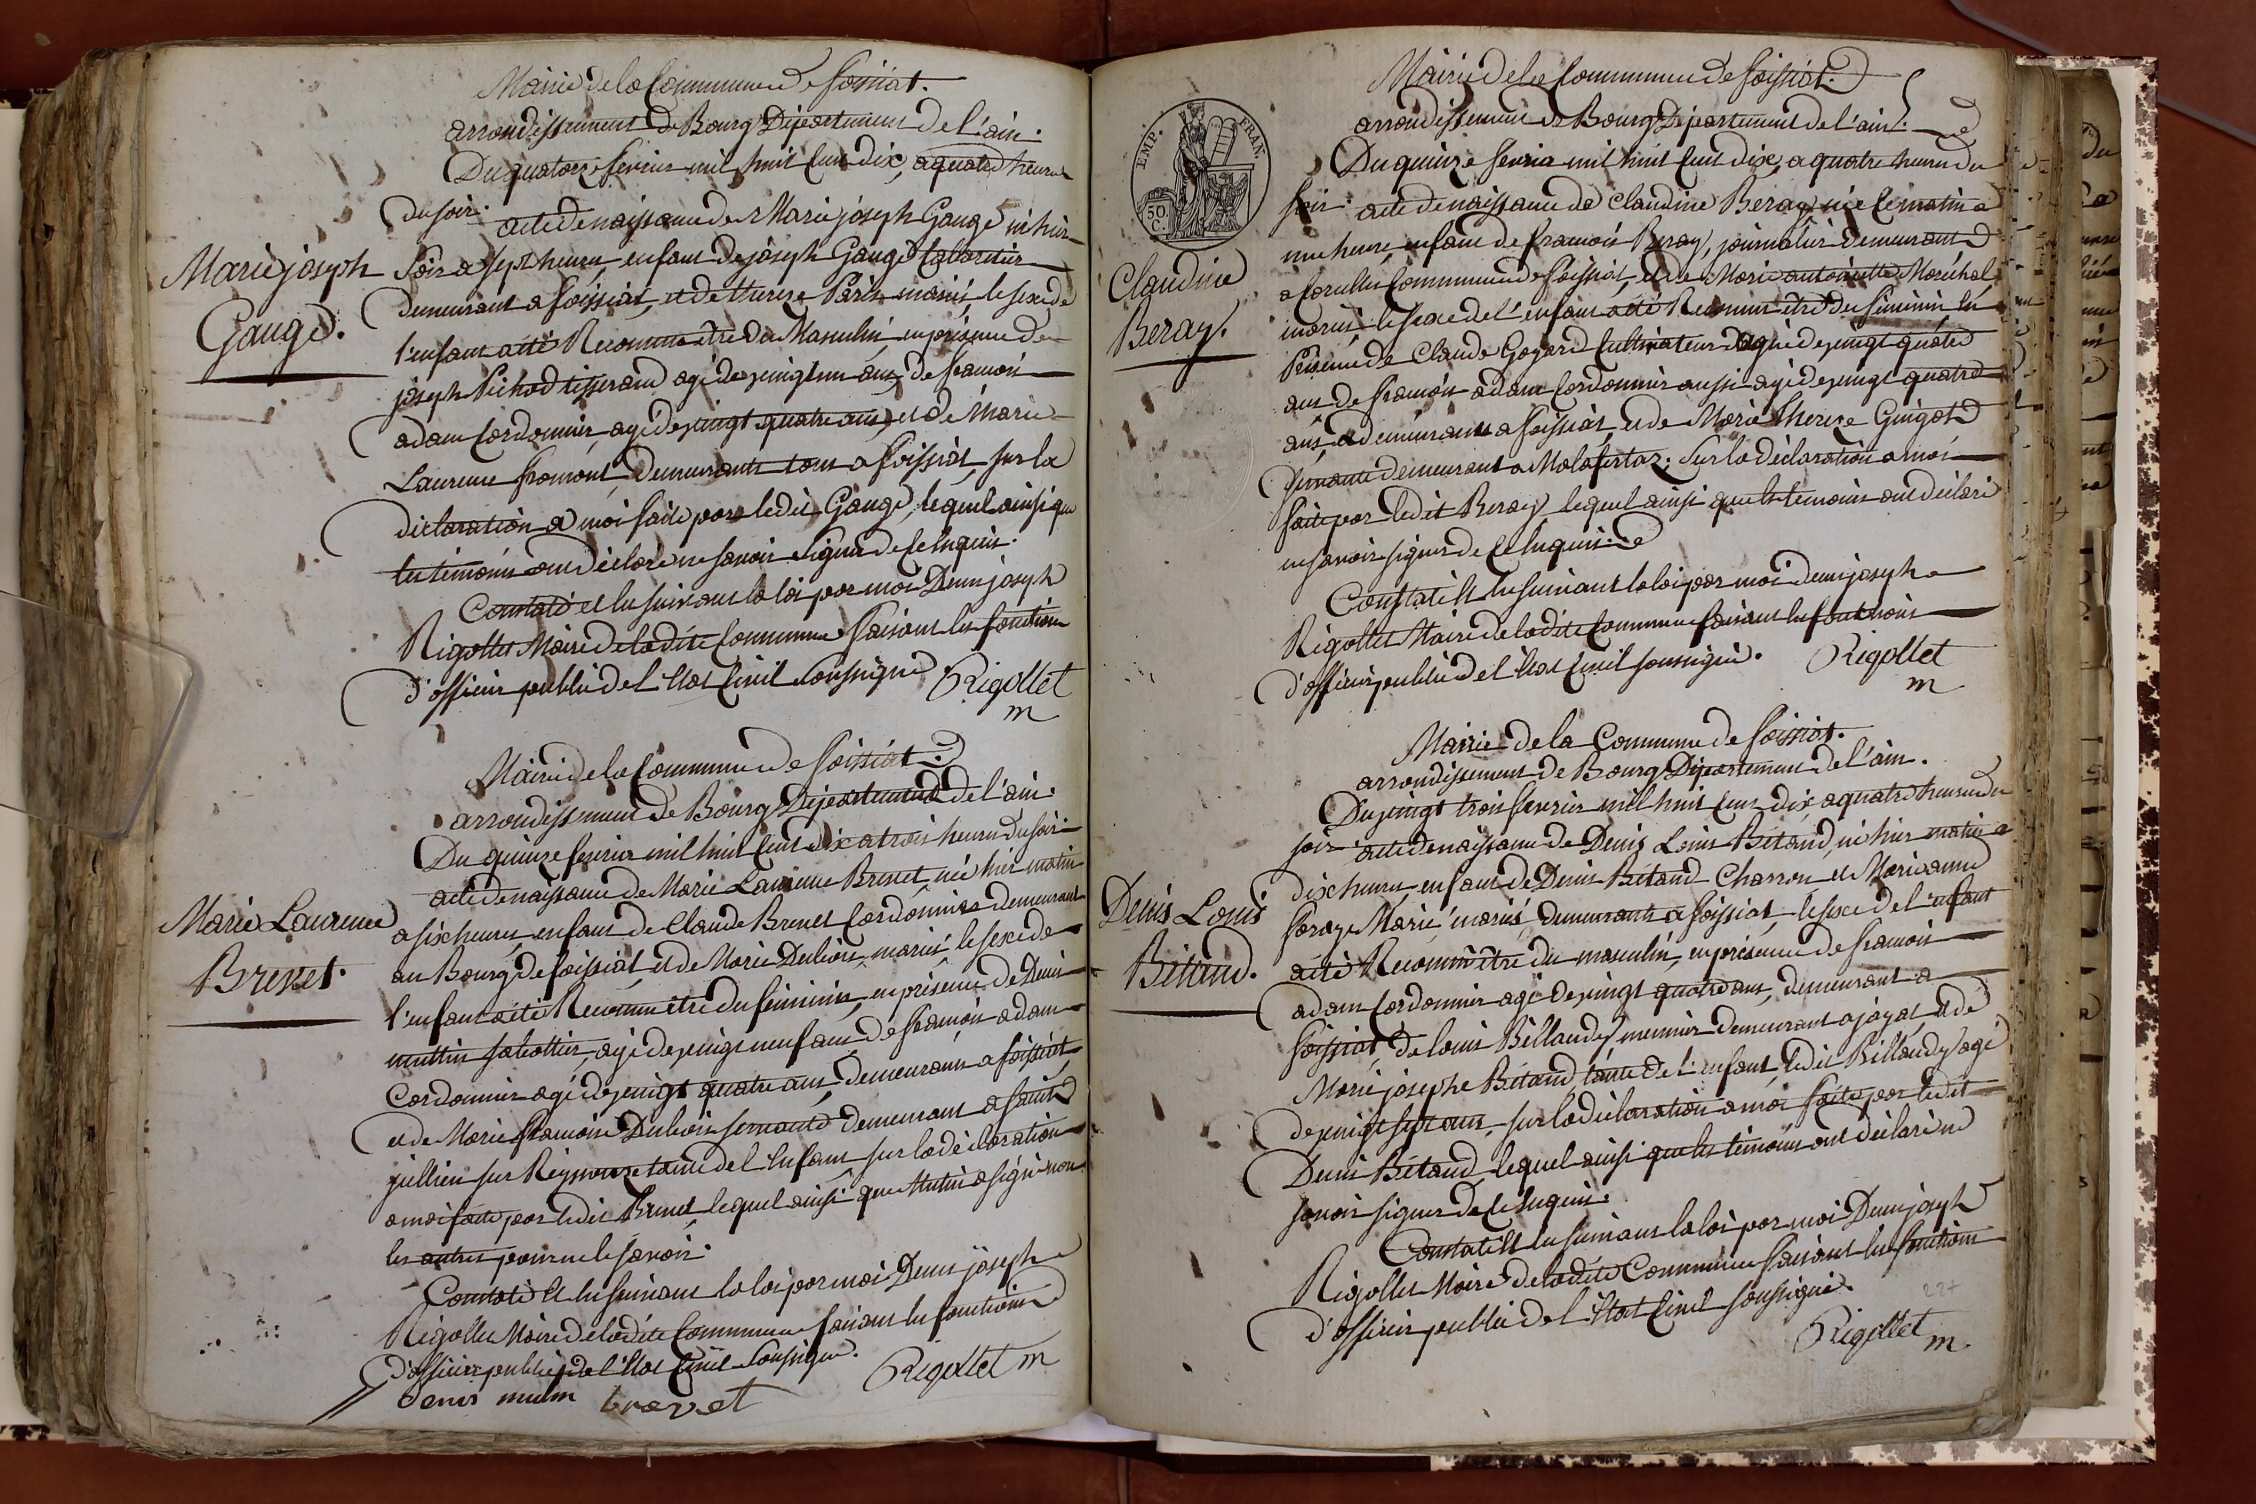 Mairie de la Commune de foissiat.
arrondissement de Bourg Département de l'ain.
Du quatorze fevrier mil huit cent dix, a quatre heures
du soir. acte de naissance de Marie joseph Gauge né hier
Marie joseph
Gauge.
soir a sept heures, enfant de joseph Gauge Cabaretier
demeurant a foissiat, et de therese Paris mariés, le sexe de
l'enfant a été Reconnu être du Masculin, en présence de
joseph Pichod tisserand agé de vingt un ans, de framois
adam Cordonnier agé de vingt quatre ans, et de Marie
Laurence framont, demeurants tous a foissiat, sur la
déclaration a moi faite par ledit Gauge, lequel ainsi que
les témoins ont déclaré ne savoir signer de ce enquis.
Constaté et lu suivant la loi par moi Denis joseph
Rigollet Maire de ladite Commune faisant les fonctions
d'officier public de l'Etat Civil soussigné. Rigollet
m
Mairie de la Commune de foissiat.
arrondissement de Bourg Département de l'ain.
Du quinze fevrier mil huit cent dix a trois heures du soir
acte de naissance de Marie Laurence Brevet, née hier matin
Marie Laurence
Brevet.
a six heures enfant de Claude Brevet Cordonnier demeurant
au Bourg de foissiat, et de Marie Dubois mariés, le sexe de
l'enfant a été Reconnu être du féminin, en présence de Denis
muttin sabottier, agé de vingt neuf ans de framois adam
Cordonnier agé de vingt quatre ans, demeurants a foissiat,
et de Marie framoise Dubois servante demeurant a saint
jullien sur Reyssouze tante de l'enfant, sur la déclaration
a moi faite par ledit Brevet, lequel ainsi que Mutin a signé non
les autres pour ne le savoir.
Constaté et lu suivant la loi par moi Denis joseph
Rigollet Maire de ladite Commune faisant les fonctions
d'officier public de l'Etat Civil soussigné.
Rigollet m
denis mutin brevet
EMP. FRAN.
50.
C.
Mairie de la Commune de foissiat.
arrondissement de Bourg Département de l'ain.
Du quinze fevrier mil huit cent dix, a quatre heures du
soir. acte de naissance de Claudine Beray, née ce matin a
une heure, enfant de framois Beray, journalier demeurant
Claudine
Beray.
Commune de foissiat, et de Marie antoinette Maréchal
mariés, le sexe de l'enfant a été Reconnu être du féminin en
Présence de Claude Goyard Cultivateur agé de vingt quatre
ans de framois adam Cordonnier aussi agé de vingt quatre
ans, demeurants a foissiat, et de Marie Therese Guigot
servante demeurant a Malafretaz; sur la déclaration a moi
faite par ledit Beray lequel ainsi que les temoins ont déclaré
ne savoir signer de ce enquis.
Constaté et lu suivant la loi par moi denis joseph
Rigollet Maire de ladite Commune faisant les fonctions
d'officier public de l'Etat Civil soussigné. Rigollet
m
Mairie de la Commune de foissiat.
arrondissement de Bourg Département de l'ain.
Du vingt trois fevrier mil huit cent dix, a quatre heures du
soir acte de naissance de Denis Louis Bétaud, né hier matin a
Denis Louis
Bétaud.
dix heures, enfant de Denis Bétaud Charron et Marie anne
mariés, demeurants a foissiat, le sexe de l'enfant
a été Reconnu être du masculin, en présence de framois
adam Cordonnier agé de vingt quatre ans, demeurant a
foissiat, de louis Billaudey meunier demeurant a jayat, et de
Marie josephe Bétaud, tante de l'enfant, ledit Billaudey agé
de vingt sept ans, sur la déclaration a moi faite par ledit
Denis Bétaud, lequel ainsi que les témoins ont déclaré ne
savoir signer de ce enquis.
Constaté et lu suivant la loi par moi Denis joseph
Rigollet Maire de ladite Commune faisant les fonctions
d'officier public de l'Etat Civil soussigné.
227
Rigollet
m.